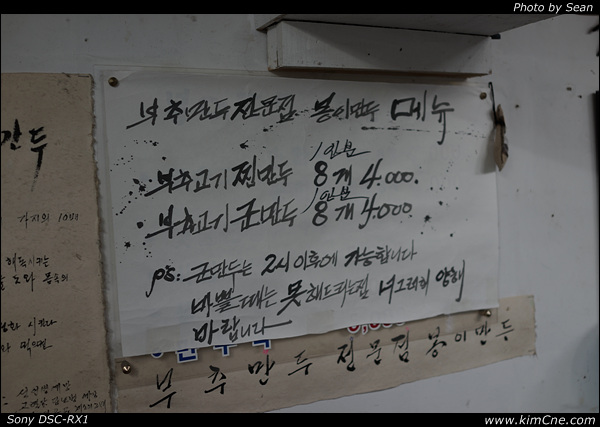 Photo by Sean
부추만두전문점 봉이만두 메뉴
1인분
부추고기 찐만두 8개 4.000.
1인분
부추고기 군만두 8개 4.000
PS: 군만두는 2시 이후에 가능합니다
바쁠때는 못해드리는점 너그러히 양해
바랍니다
부추만두 전문점 봉이만두
만두
가지의 10배
Sony DSC-RX1
www.kimCne.com